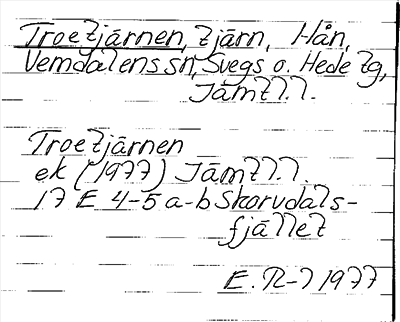 Troetjärnen, tjärn, Hån,
Vemdalens sn, Svegs o. Hede tg,
Jämtl.l.
Troetjärnen
ek (1977) Jämtl.l.
17 E 4-5 a-b Skorvdals-
fjället
E. R-l 1977